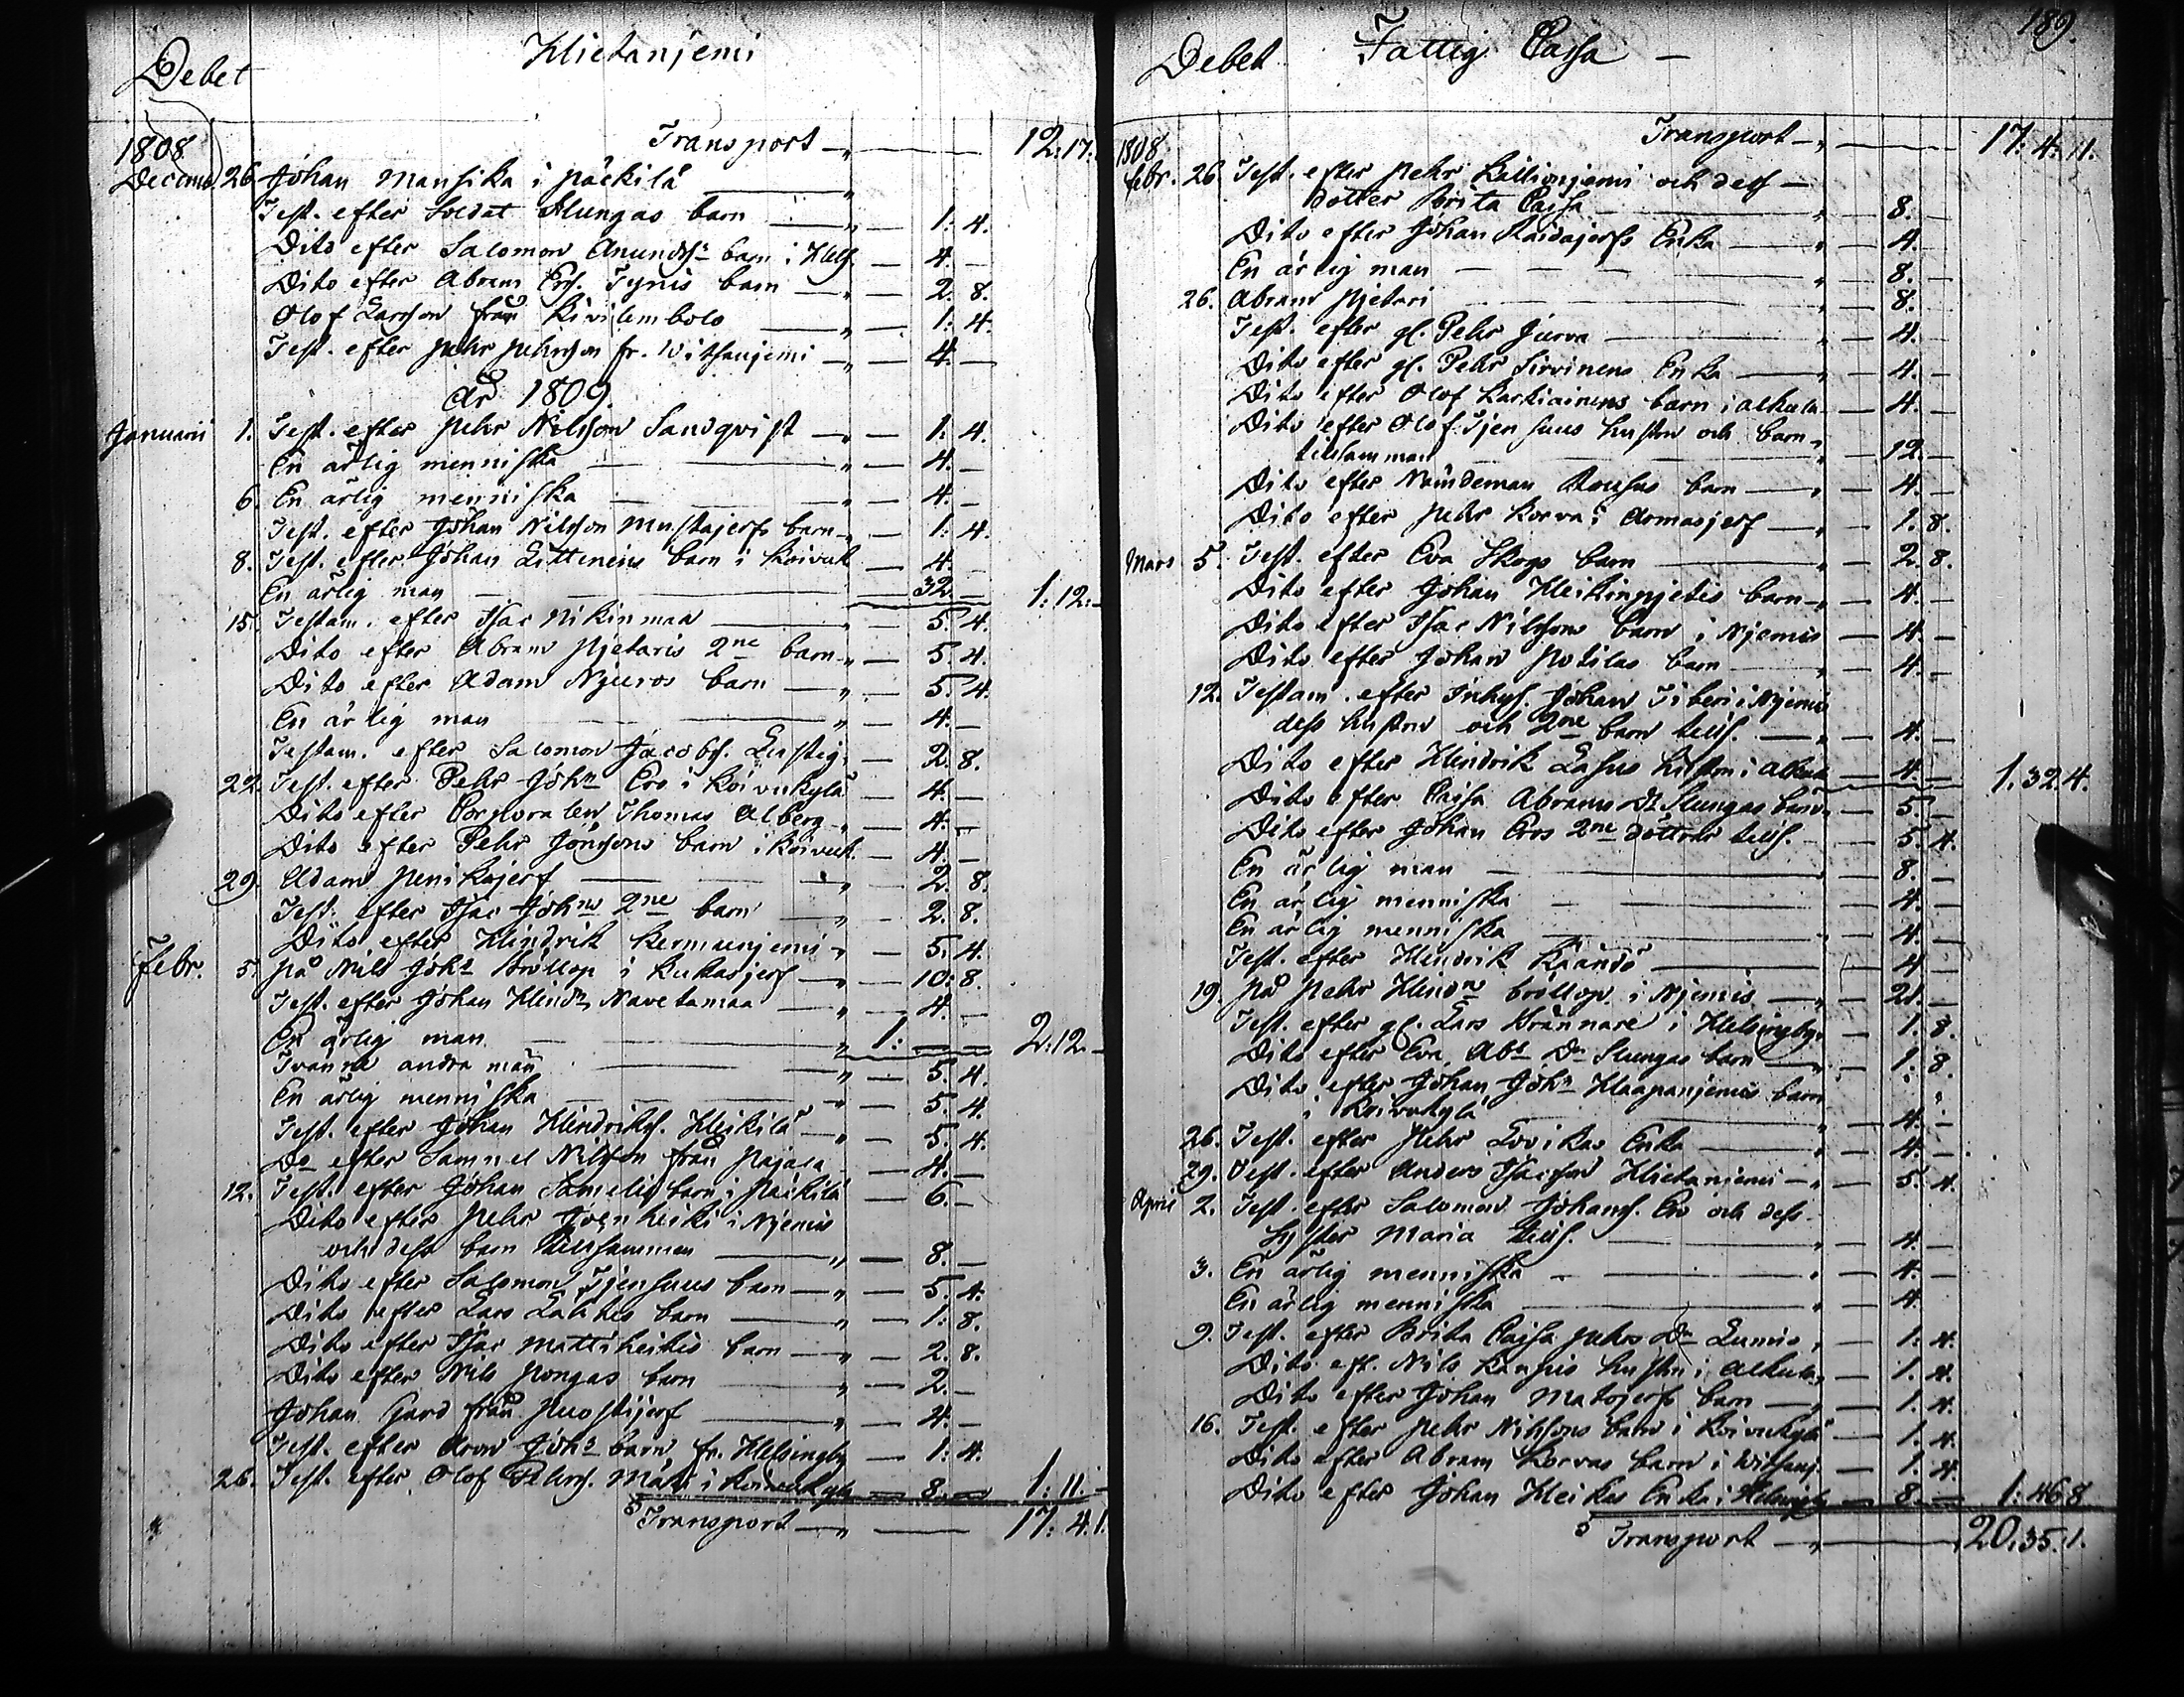 Debet Hietanjemi
1808 Transport 12:17:
Decemb 26 Johan Mansika i Päckilä
Test. efter Soldat Slungas barn 1: 4.
Dito efter Salomon Anunds:n barn i Hels. 4. —
Dito efter Abram Ers. Tynis barn 2. 8.
Olof Larsson från Kivilembolo 1: 4.
Test. efter Pehr Pehrsson fr. Witsanjemi 4. —
År 1809.
Januarii 1. Test. efter Pehr Nilsson Sandqvist 1: 4.
En ärlig menniska 4. —
6. En ärlig menniska 4. —
Test. efter Johan Nilsson Mustajerfs barn 1: 4.
8. Test. efter Johan Littenens barn i Koivuk 4. —
En ärlig man 32 — 1:12: —
15. Testam. efter Isac Nikinmaa 5. 4.
Dito efter Abram Pjetaris 2ne barn 5. 4.
Dito efter Adam Njuros barn 5. 4.
En ärlig man 4. —
Testam. efter Salomon Jacobs. Lustig 2. 8.
22. Test. efter Pehr Joh:n Ero i Koivukylä 4. —
Dito efter Corporalen Thomas Alberg 4. —
Dito efter Pehr Jönssons barn i Koivuk. 4. —
29. Adam Penikajerf 2. 8.
Test. efter Isac Joh:ns 2ne barn 2. 8.
Dito efter Hindrik Kermunjemi 5. 4.
Febr. 5. på Nils Joh:s Bröllop i Kukasjerf 10: 8.
Test. efter Johan Hind:n Navetamaa 4. —
En ärlig man 1: — — 2:12. —
Tvänne andra män 5. 4.
En ärlig menniska 5. 4.
Test. efter Johan Hindriks. Heikilä 5. 4.
Do efter Samuel Nilsson från Pajala 4. —
12. Test. efter Johan Samelis barn i Päckilä 6. —
Dito efter Pehr Joenheiki i Njemis
och dess barn tillsamman 8. —
Dito efter Salomon Tjensuus barn 5. 4.
Dito efter Lars Lahtis barn 1: 8.
Dito efter Isac Mattiheikis barn 2. 8.
Dito efter Nils Pongas barn 2. —
Johan Gard från Puostijerf 4. —
Test. efter Aron Joh:s barn fr. Helsingby 1: 4.
26. Test. efter Olof Pehrs. Mäki i Koivukylä 8. — 1: 11: —
Transport 17: 4.1.
189.
Debet Fattig Cassa —
1808 Transport 17: 4. 11.
febr. 26. Test. efter Pehr Kallionjemi och dess —
dotter Brita Cajsa 8. —
Dito efter Johan Raidajerfs Enka 4. —
En ärlig man 8. —
26. Abram Pjetari 8. —
Test. efter gl. Pehr Jurva 4. —
Dito efter gl. Pehr Sirvinens Enka 4. —
Dito efter Olof Karkiainens barn i Alkula 4. —
Dito efter Olof Tjensuus hustru och barn
tillsamman 12. —
Dito efter Nämndeman Rousus barn 4. —
Dito efter Pehr Korva i Armasjerf 1. 8.
Mars 5. Test. efter Eva Skogs barn 2. 8.
Dito efter Johan Heikinpjetis barn 4. —
Dito efter Isac Nilssons barn i Njemis 4. —
Dito efter Johan Potilas barn 4. —
12. Testam. efter Inhys. Johan Iiberi i Njemis
dess hustru och 2ne barn tills. 4. —
Dito efter Hindrik Lassus hustru i Alkula 4. — 1.32.4.
Dito efter Cajsa Abrams Dr Slungas barn 5. —
Dito efter Johan Eros 2ne döttrar tills. 5. 4.
En ärlig man 8. —
En ärlig menniska 4. —
En ärlig menniska 4. —
Test. efter Hindrik Käändö 4 —
19. på Pehr Hind:ns bröllop i Njemis 21. —
Test. efter gl. Lars Brännare i Helsingby 1. 8.
Dito efter Eva Ab:s Dr Slungas barn 1. 8.
Dito efter Johan Joh:n Haapanjemis barn
i Koivukylä 4. —
26. Test. efter Pehr Lovikas Enka 4. —
29. Test. efter Anders Isacsson Hietanjemi 5. 4.
April 2. Test. efter Salomon Johans. Ero och dess
Syster Maria tills. 4. —
3. En ärlig menniska 4. —
En ärlig menniska 4.
9. Test. efter Brita Cajsa Pehrs Dr Lumio 1. 4.
Dito eft. Nils Kangis hustru i Alkula 1. 4.
Dito efter Johan Matojerfs barn 1. 4.
16. Test. efter Pehr Nilssons barn i Koivukylä 1. 4.
Dito efter Abram Korvas barn i Witsanj. 1. 4.
Dito efter Johan Heikas Enka i Helsingby 8. — 1: 46.8
Transport 20.35.1.